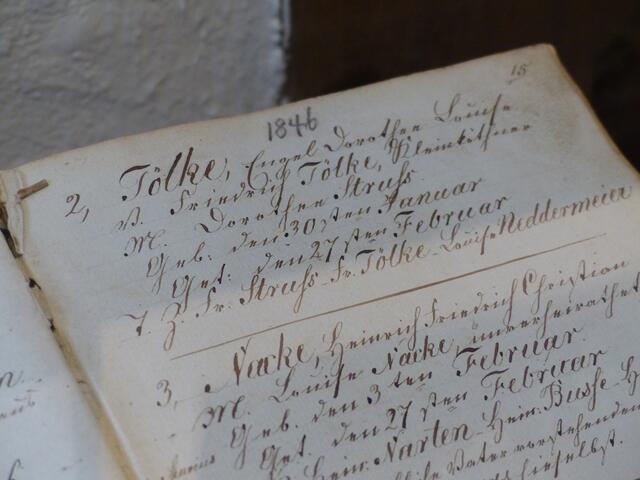 15
1846
2, Tölke, Engel Dorothee Louise
V. Friedrich Tölke, Kleinköthner
M. Dorothee Struss
Geb: den 30sten Januar
Get: den 27sten Februar
T. Z. Fr. Struss - Fr. Tölke - Louise Neddermeier
3, Nacke, Heinrich Friedrich Christian
M. Louise Nacke, unverheirathet
Geb. den 3ten Februar
Get. den 27sten Februar
Heinr. Narten - Heinr. Busse - H
Vater vorstehenden
hieselbst.